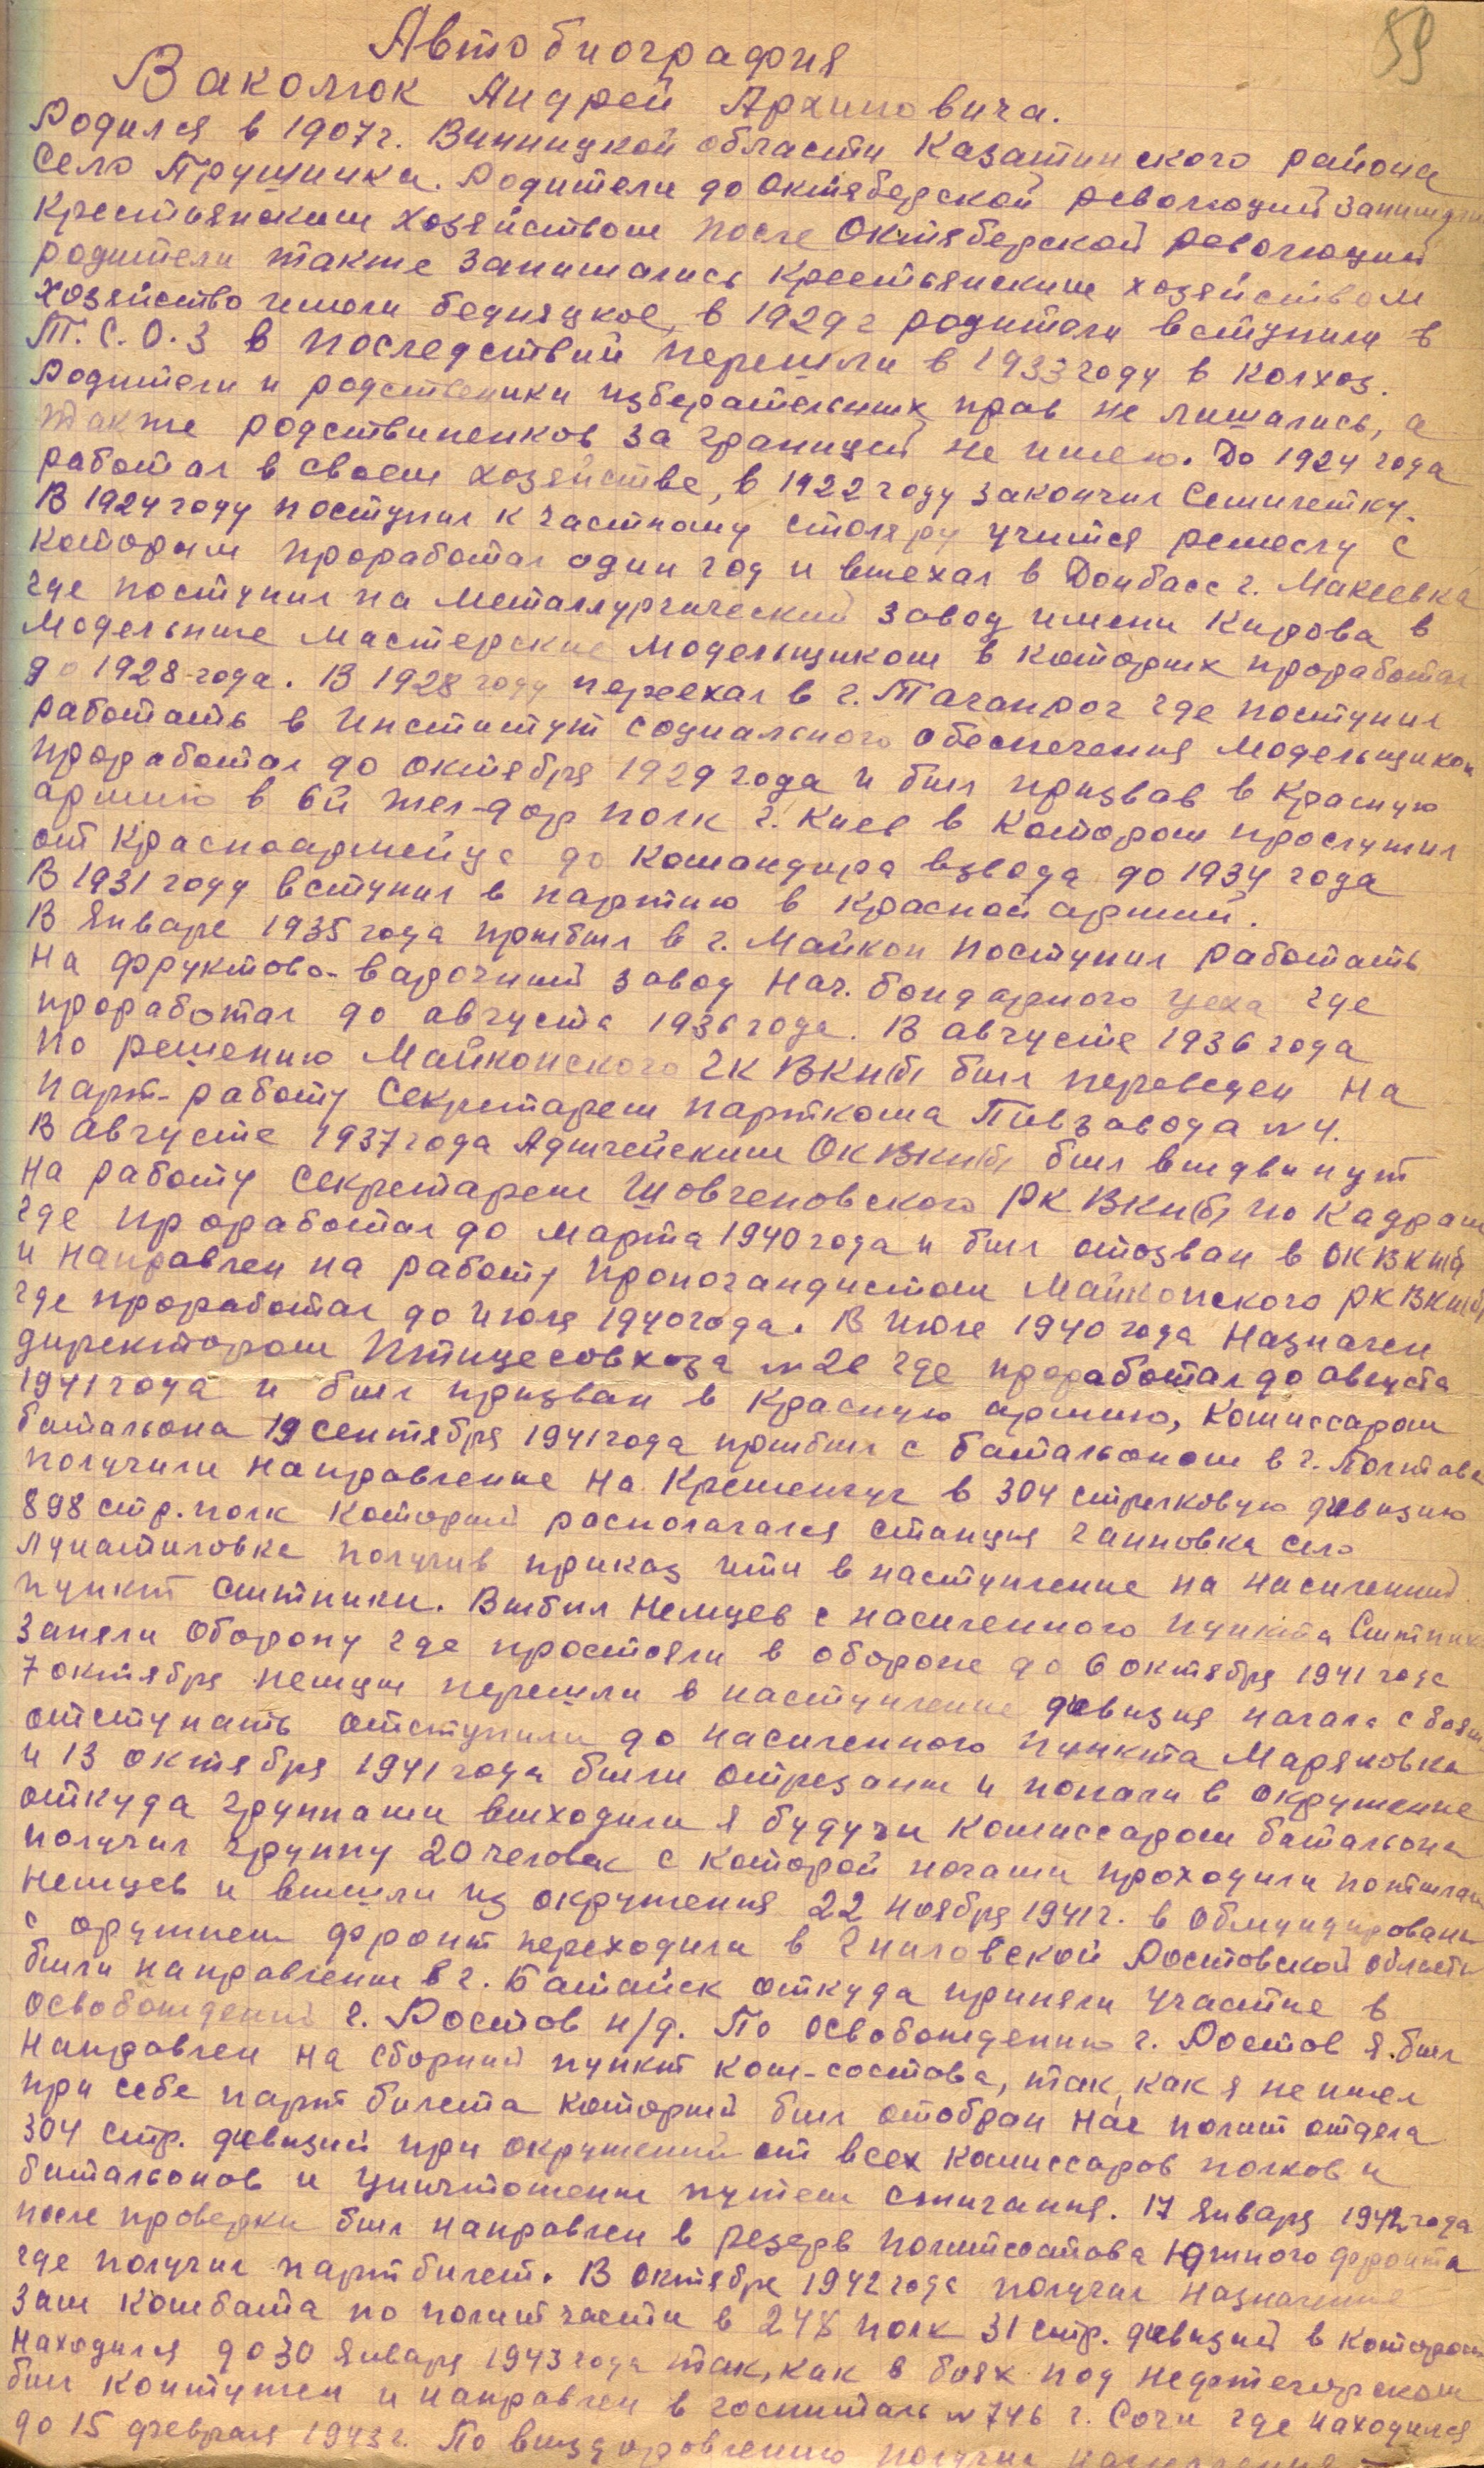 59
Автобиография
Ваколюк Андрей Архиповича.
Родился в 1907г. Винницкой области Казатинского района
село Прушинки. Родители до Октяберской революций занимались
крестьянским хозяйством после Октяберской революций
родители также занимались крестьянским хозяйством
хозяйство имели бедняцкое, в 1929г родители вступили в
Т.С.О.З в последствий перешли в 1933 году в колхоз.
Родители и родственики изберательных прав не лишались, а
также родствиненков за границей не имею. До 1924 года
работал в своем хозяйстве, в 1922 году закончил семилетку.
В 1924 году поступил к частному столяру учится ремеслу с
которым проработал один год и выехал в Донбасс г. Макеевка
где поступил на металлургический завод имени Кирова в
модельные мастерские модельщиком в которых проработал
до 1928 года. В 1928 году переехал в г. Таганрог где поступил
работать в Институт социального обеспечения модельщиком
проработал до октября 1929 года и был призвав в Красную
армию в 6й жел-дор полк г. Киев в котором прослужил
от красноармейца до командира взвода до 1934 года
В 1931 году вступил в партию в Красной армий.
В январе 1935 года прибыл в г. Майкоп поступил работать
на фруктово-варочный завод нач. бондарного цеха где
проработал до августа 1936 года. В августе 1936 года
по решению Майкопского ГК ВКП(б) был переведен на
парт-работу секретарем парткома Пивзавода №4.
В августе 1937 года Адыгейским ОК ВКП(б) был выдвинут
на работу секретарем Шовгеновского РК ВКП(б) по кадрам
где проработал до марта 1940 года и был отозван в ОК ВКП(б)
и направлен на работу пропогандистом Майкопского РК ВКП(б)
где проработал до июля 1940 года. В июле 1940 года назначен
директором Птицесовхоза №20 где проработал до августа
1941 года и был призван в Красную армию, комиссаром
батальона 19 сентября 1941 года прибыл с батальоном в г. Полтава
получили направление на Кременчуг в 304 стрелковую дивизию
898 стр. полк который распологался станция Ганновка село
получив приказ ити в наступление на насиленный
пункт Сытники. Выбил немцев с насиленного пункта Сытник
заняли оборону где простояли в обороне до 6 октября 1941 года
7 октября немцы перешли в наступление дивизия начала с боям
отступать отступили до насиленного пункта Маряновка
и 13 октября 1941 года были отрезаны и попали в окружение
откуда группами выходили я будучи комиссаром батальона
получил группу 20 человек с которой ночами проходили по тылам
немцев и вышли из окружения 22 ноября 1941г. в обмундировании
с оружием фронт переходили в Гниловской Ростовской области
были направлены в г. Батайск откуда приняли участие в
освобождений г. Ростов н/д. По освобождению г. Ростов я был
направлен на сборный пункт ком-состова, так, как я не имел
при себе парт билета который был отобран нач полит отдела
304 стр. дивизий при окружений от всех комиссаров полков и
батальонов и уничтожены путем сжигания. 17 января 1942 года
после проверки был направлен в резерв политсостова Южного фронта
где получил партбилет. В октябре 1942 года получил назначение
зам комбата по полит части в 248 полк 31 стр. дивизий в котором
находился до 30 января 1943 года так, как в боях под недфтегорском
был контужен и направлен в госпиталь №746 г. Сочи где находился
до 15 февраля 1943г. По выздоровлению получил